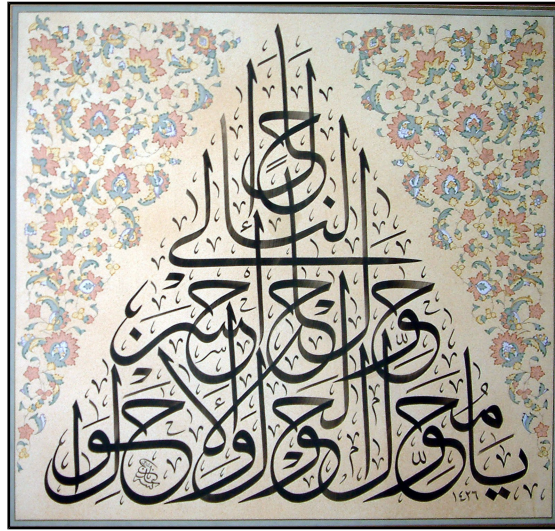 يا مُحوِّل الحول والاحوال
حوِّل حالنا الى احسن الحال
١٤٢٦